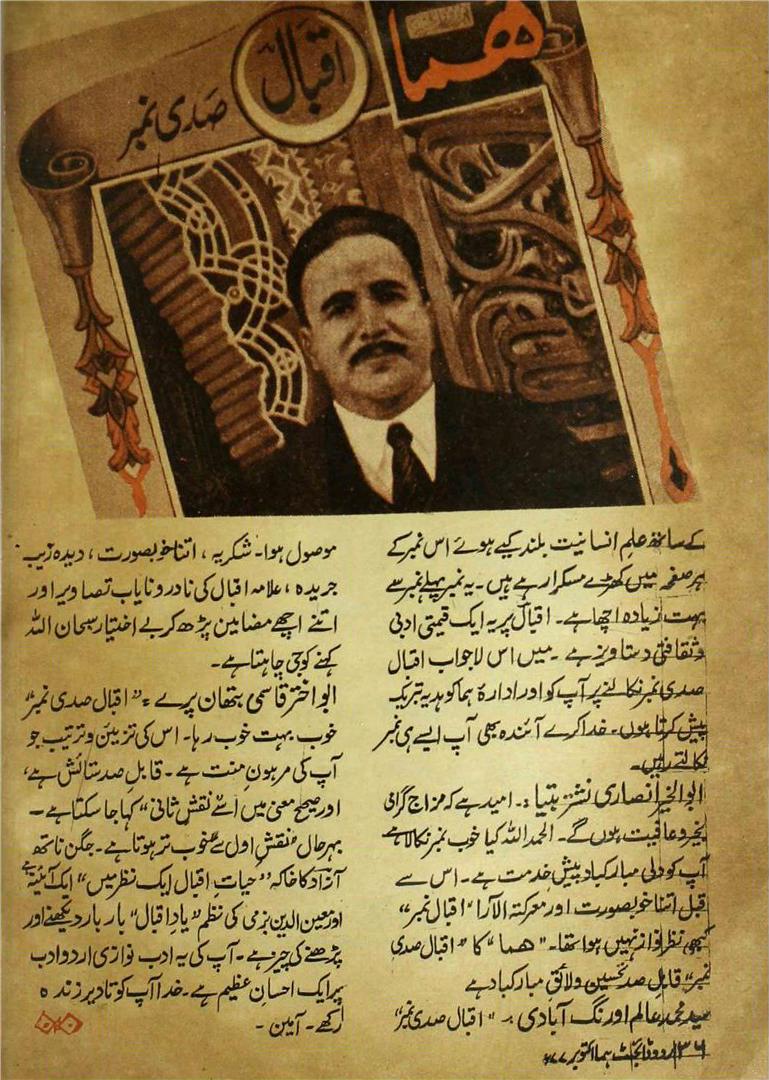 ھما
اقبالؒ
صدی نمبر
کے ساتھ علمِ انسانیت بلند کیے ہوئے اس نمبر کے
ہر صفحہ میں کھڑے مسکرا رہے ہیں۔ یہ نمبر پہلے نمبر سے
بہت زیادہ اچھا ہے۔ اقبال پر یہ ایک قیمتی ادبی
و ثقافتی دستاویز ہے۔ میں اس لاجواب اقبال
صدی نمبر نکالنے پر آپ کو اور ادارۂ ہما کو ہدیہ تبریک
پیش کرتا ہوں۔ خدا کرے آئندہ بھی آپ ایسے ہی نمبر
نکالتے رہیں۔
ابوالخیر انصاری نشتر بتیا :۔ امید ہے کہ مزاج گرامی
بخیر و عافیت ہوں گے۔ الحمد اللہ کیا خوب نمبر نکالا ہے
آپ کو دلی مبارکباد پیش خدمت ہے۔ اس سے
قبل اتنا خوبصورت اور معرکتہ الآرا "اقبال نمبر"
کبھی نظر نواز نہیں ہوا تھا۔ "ھما" کا "اقبال صدی
نمبر" قابل صد تحسین ولائقِ مبارکباد ہے
سید محمد عالم اورنگ آبادی :۔ "اقبال صدی نمبر"
موصول ہوا۔ شکریہ، اتنا خوبصورت، دیدہ زیب
جریدہ، علامہ اقبال کی نادر و نایاب تصاویر اور
اتنے اچھے مضامین پڑھ کر بے اختیار سبحان اللہ
کہنے کو جی چاہتا ہے۔
ابو اختر قاسمی بتھان پرے :۔ "اقبال صدی نمبر"
خوب بہت خوب رہا۔ اس کی تزئین و ترتیب جو
آپ کی مرہونِ منت ہے۔ قابلِ صد ستائش ہے،
اور صحیح معنی میں اسے نقش ثانی" کہا جا سکتا ہے۔
بہر حال نقشِ اول سے خوب تر ہوتا ہے۔ جگن ناتھ
آزاد کا خاکہ "حیاتِ اقبال ایک نظر میں" ایک آئینہ ہے
اور معین الدین بزمی کی نظم "یادِ اقبال" بار بار دیکھنے اور
پڑھنے کی چیز ہے۔ آپ کی یہ ادب نوازی اردو ادب
پر ایک احسانِ عظیم ہے۔ خدا آپ کو تادیر زندہ
رکھے۔ آمین۔
۱۳۶ اردو ڈائجسٹ ہما اکتوبر ۷۷ء